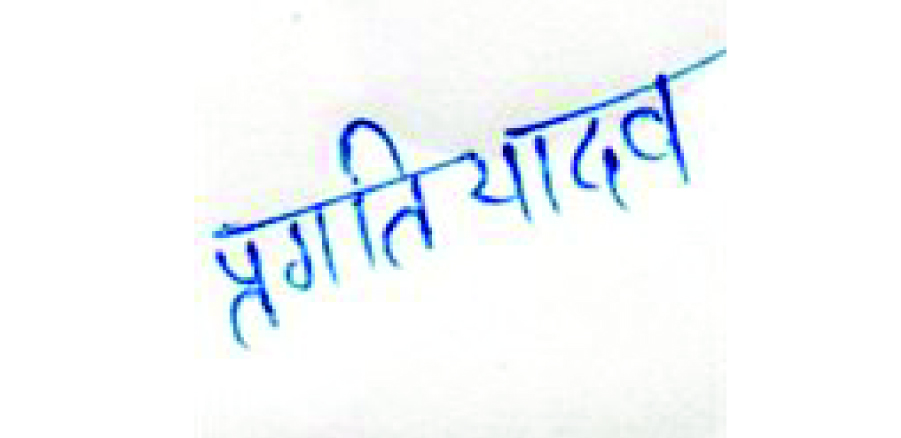 प्रगति यादव